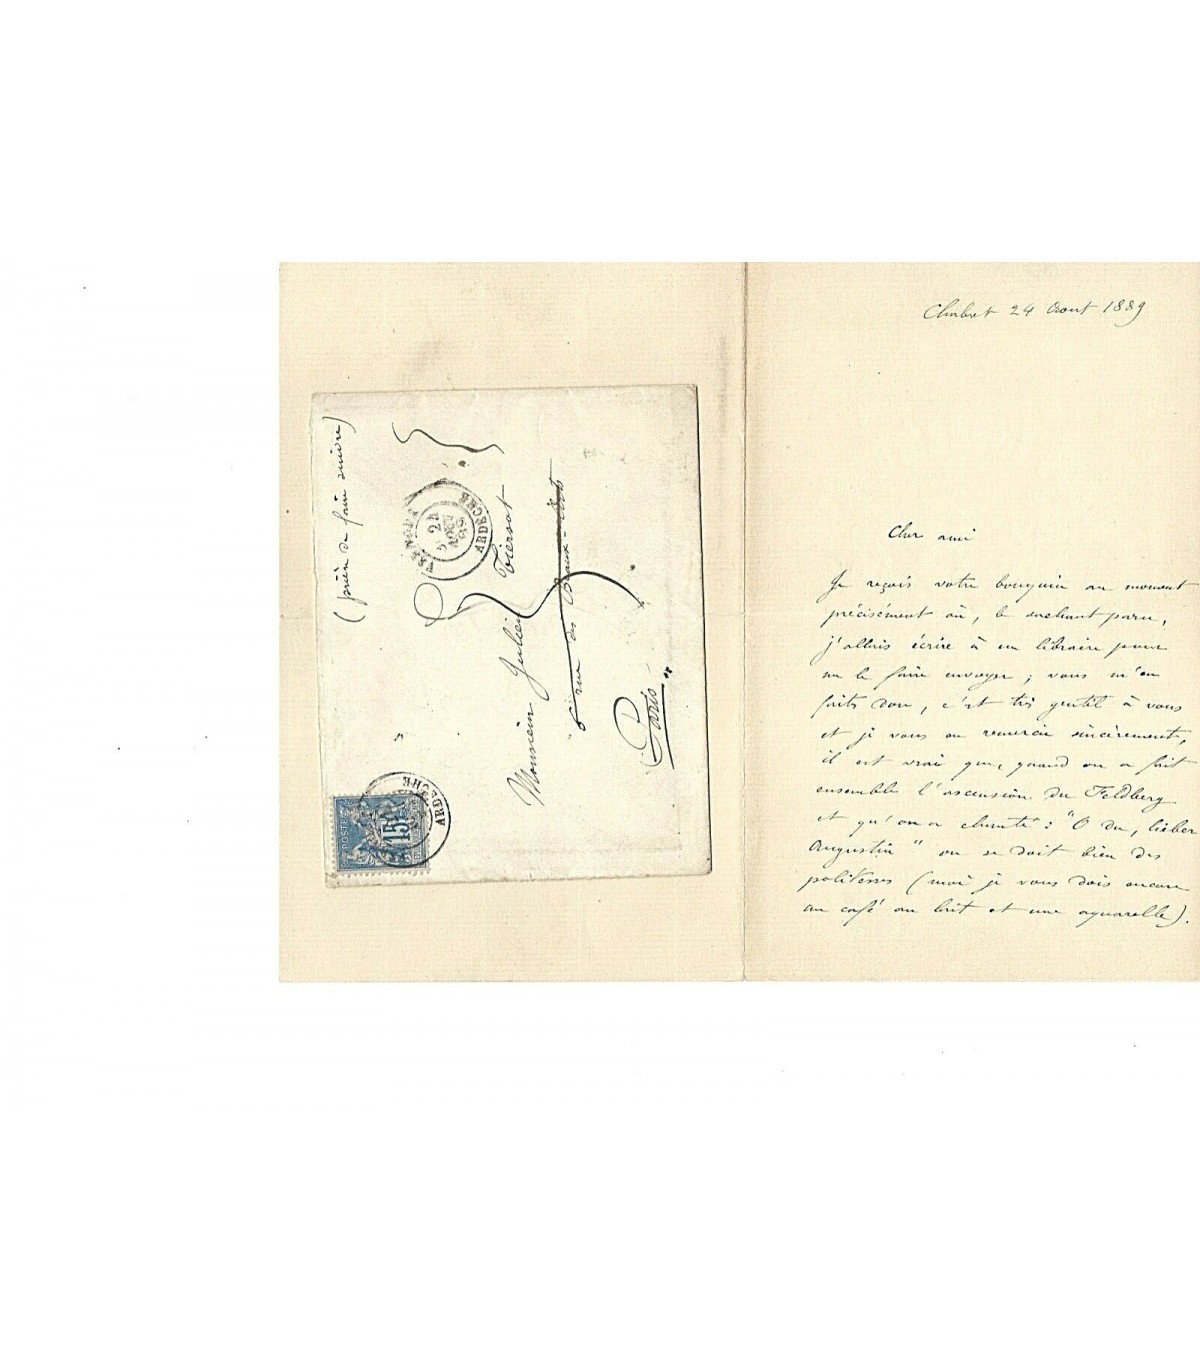 (prière de faire suivre)
VERNOUX
25
AOUT
89
ARDECHE
Monsieur Julien Tiersot
6 rue des Beaux-Arts
Paris
POSTE
15
ARDECHE
24 Aout 1889
Cher ami
Je reçois votre bouquin au moment
précisément où, le sachant paru,
j'allais écrire à un libraire pour
me le faire envoyer ; vous m'en
faites don, c'est très gentil à vous
et je vous en remercie sincèrement,
il est vrai que, quand on a fait
ensemble l'ascension du Feldberg
et qu'on a chanté : "O du, lieber
Augustin" on se doit bien des
politesses (moi je vous dois encore
un café au lait et une aquarelle).